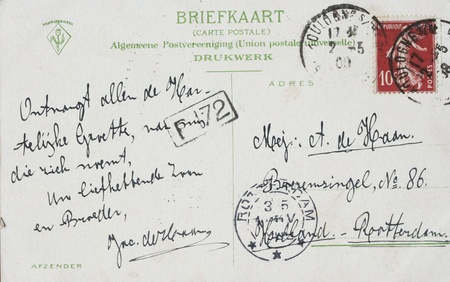 BRIEFKAART
(CARTE POSTALE)
Algemeene Postvereeniging (Union postale universelle)
DRUKWERK
ADRES
17
2-5
10
POSTES
F 72
Ontvangt allen de Har-
telijke Groette, van mij
die zich noemt,
Uw liefhebbende Zoon
en Broeder,
Jac. de Haan
Mej: A de Haan.
Boezemsingel, No. 86.
ROTTERDAM
3 5
Holland. - Rotterdam.
AFZENDER